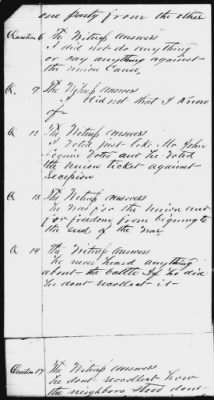 one party from the other
Question 6 The Witness answers
I did not do anything
or say anything against
the union Cause,
Q. 9 The Witness answers
I did not that I know
of
Q 12 The Witness answers
I Voted just like Mr John
Voted and he Voted
the union ticket against
Secession
Q 13 The Witness answers
he was for the union and
for freedom from begining to
the end of the War
Q 14 The Witness answers
he never heard anything
about the battle if he did
he dont recollect it
Question 17 The Witness answers
he dont recollect how
the neighbors stood dont